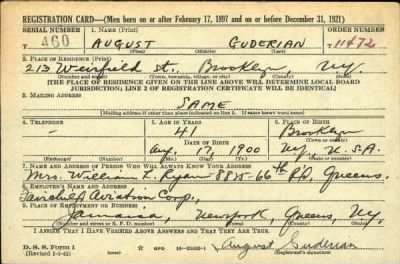 REGISTRATION CARD—(Men born on or after February 17, 1897 and on or before December 31, 1921)
SERIAL NUMBER 1. NAME (Print) ORDER NUMBER
T 460 AUGUST GUDERIAN T 11472
(First) (Middle) (Last)
2. PLACE OF RESIDENCE (Print)
213 Weirfield St. Brooklyn NY.
(Number and street) (Town, township, village, or city) (County) (State)
[THE PLACE OF RESIDENCE GIVEN ON THE LINE ABOVE WILL DETERMINE LOCAL BOARD
JURISDICTION; LINE 2 OF REGISTRATION CERTIFICATE WILL BE IDENTICAL]
3. MAILING ADDRESS
SAME
[Mailing address if other than place indicated on line 2. If same insert word same]
4. TELEPHONE 5. AGE IN YEARS 6. PLACE OF BIRTH
- 41 Brooklyn
DATE OF BIRTH (Town or county)
Aug. 17, 1900 NY, U.S.A.
(Exchange) (Number) (Mo.) (Day) (Yr.) (State or country)
7. NAME AND ADDRESS OF PERSON WHO WILL ALWAYS KNOW YOUR ADDRESS
Mrs. William L. Ryan - 8815-66th RD, Queens.
8. EMPLOYER'S NAME AND ADDRESS
Fairchild Aviation Corp.,
9. PLACE OF EMPLOYMENT OR BUSINESS
Jamaica, Queens, NY.
(Number and street or R. F. D. number) (Town) (County) (State)
I AFFIRM THAT I HAVE VERIFIED ABOVE ANSWERS AND THAT THEY ARE TRUE.
D. S. S. Form 1
(Revised 1-1-42) (over) GPO August Guderian
(Registrant's signature)